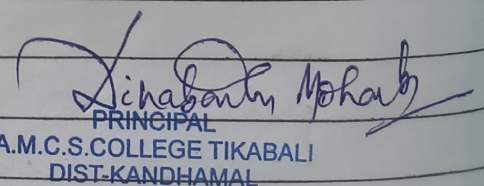 Dinabandhu Mohanty
PRINCIPAL
A.M.C.S.COLLEGE TIKABALI
DIST-KANDHAMAL